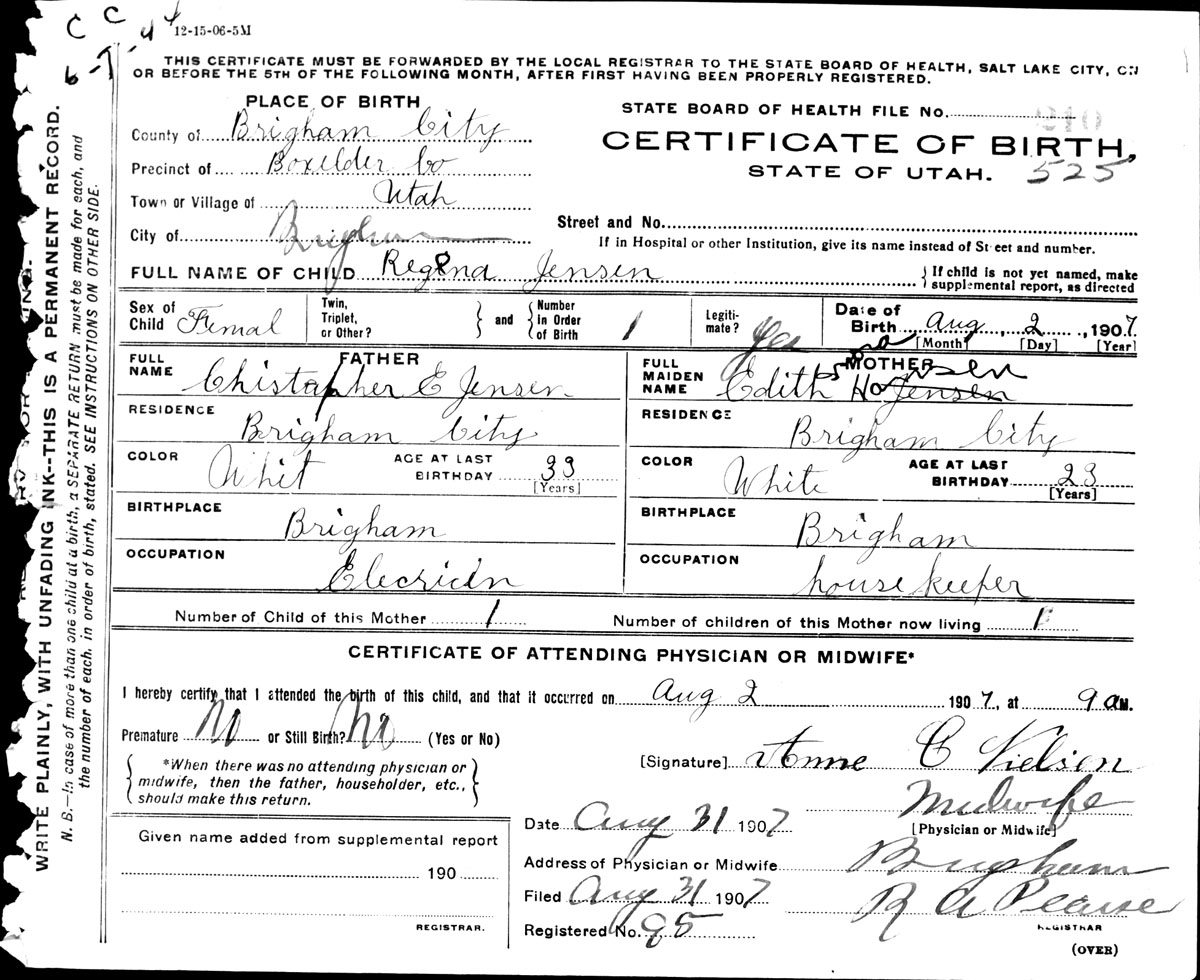 C C 4
12-15-06-5M
6-
THIS CERTIFICATE MUST BE FORWARDED BY THE LOCAL REGISTRAR TO THE STATE BOARD OF HEALTH, SALT LAKE CITY, ON
OR BEFORE THE 5TH OF THE FOLLOWING MONTH, AFTER FIRST HAVING BEEN PROPERLY REGISTERED.
WRITE PLAINLY, WITH UNFADING INK--THIS IS A PERMANENT RECORD.
N. B.—In case of more than one child at a birth, a SEPARATE RETURN must be made for each, and
the number of each, in order of birth, stated. SEE INSTRUCTIONS ON OTHER SIDE.
PLACE OF BIRTH
County of Brigham City
Precinct of Boxelder Co
Town or Village of Utah
City of Brigham
STATE BOARD OF HEALTH FILE No. 210
CERTIFICATE OF BIRTH,
STATE OF UTAH. 525
Street and No.
If in Hospital or other Institution, give its name instead of Street and number.
FULL NAME OF CHILD Regena Jensen
If child is not yet named, make
supplemental report, as directed
Sex of Child Femal
Twin, Triplet, or Other?
and
Number in Order of Birth 1
Legitimate? Yes
Date of Birth Aug, 2, 1907
[Month] [Day] [Year]
FATHER
FULL NAME Chistopher E Jensen
RESIDENCE Brigham City
COLOR Whit AGE AT LAST BIRTHDAY 33
[Years]
BIRTHPLACE Brigham
OCCUPATION Elecricin
MOTHER
FULL MAIDEN NAME Edith Jensen
RESIDENCE Brigham City
COLOR White AGE AT LAST BIRTHDAY 23
[Years]
BIRTHPLACE Brigham
OCCUPATION housekeeper
Number of Child of this Mother 1 Number of children of this Mother now living 1
CERTIFICATE OF ATTENDING PHYSICIAN OR MIDWIFE*
I hereby certify that I attended the birth of this child, and that it occurred on Aug 2 1907, at 9 aM.
Premature No or Still Birth? No (Yes or No)
*When there was no attending physician or
midwife, then the father, householder, etc.,
should make this return.
[Signature] Anne C Nielson
Midwife
[Physician or Midwife]
Date Aug 31 1907
Address of Physician or Midwife Brigham
Filed Aug 31 1907 R A Pearse
REGISTRAR
Registered No. 95
(OVER)
Given name added from supplemental report
190
REGISTRAR.